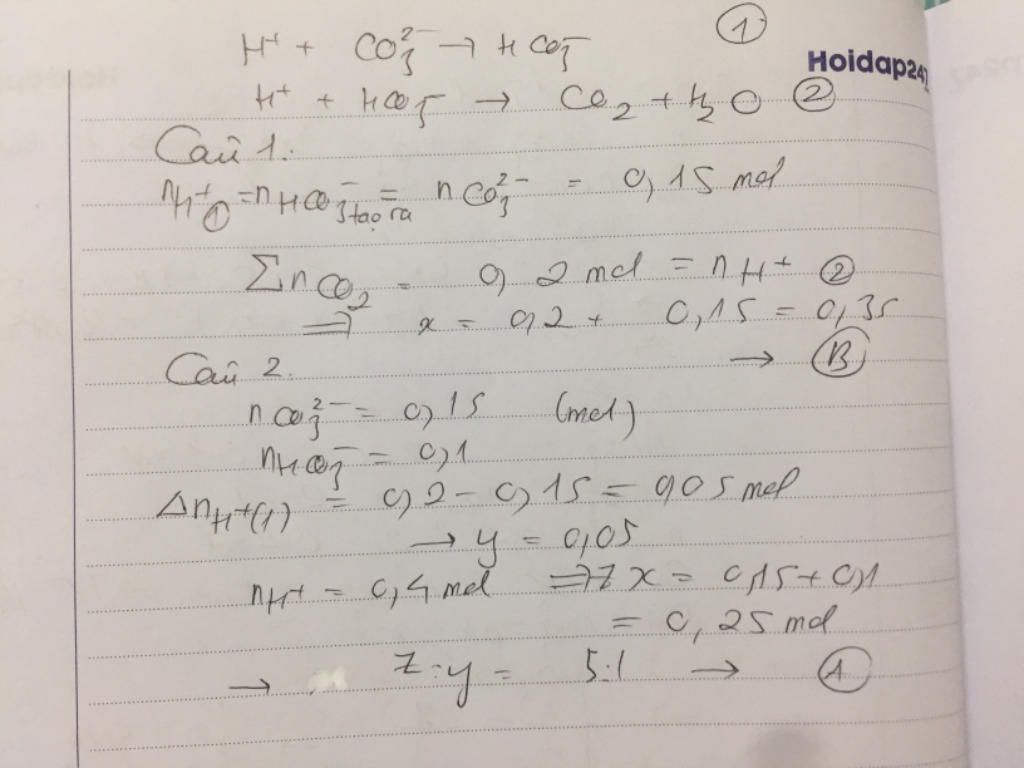 H⁺ + CO₃²⁻ → HCO₃⁻ ①
Hoidap247
H⁺ + HCO₃⁻ → CO₂ + H₂O ②
Câu 1:
nH⁺① = nHCO₃⁻ tạo ra = nCO₃²⁻ = 0,15 mol
ΣnCO₂ = 0,2 mol = nH⁺ ②
⇒ x = 0,2 + 0,15 = 0,35
→ Ⓑ
Câu 2.
nCO₃²⁻ = 0,15 (mol)
nHCO₃⁻ = 0,1
ΔnH⁺(1) = 0,2 - 0,15 = 0,05 mol
→ y = 0,05
nH⁺ = 0,4 mol ⇒ z x = 0,15 + 0,1
= 0,25 mol
→ z:y = 5:1 → Ⓐ